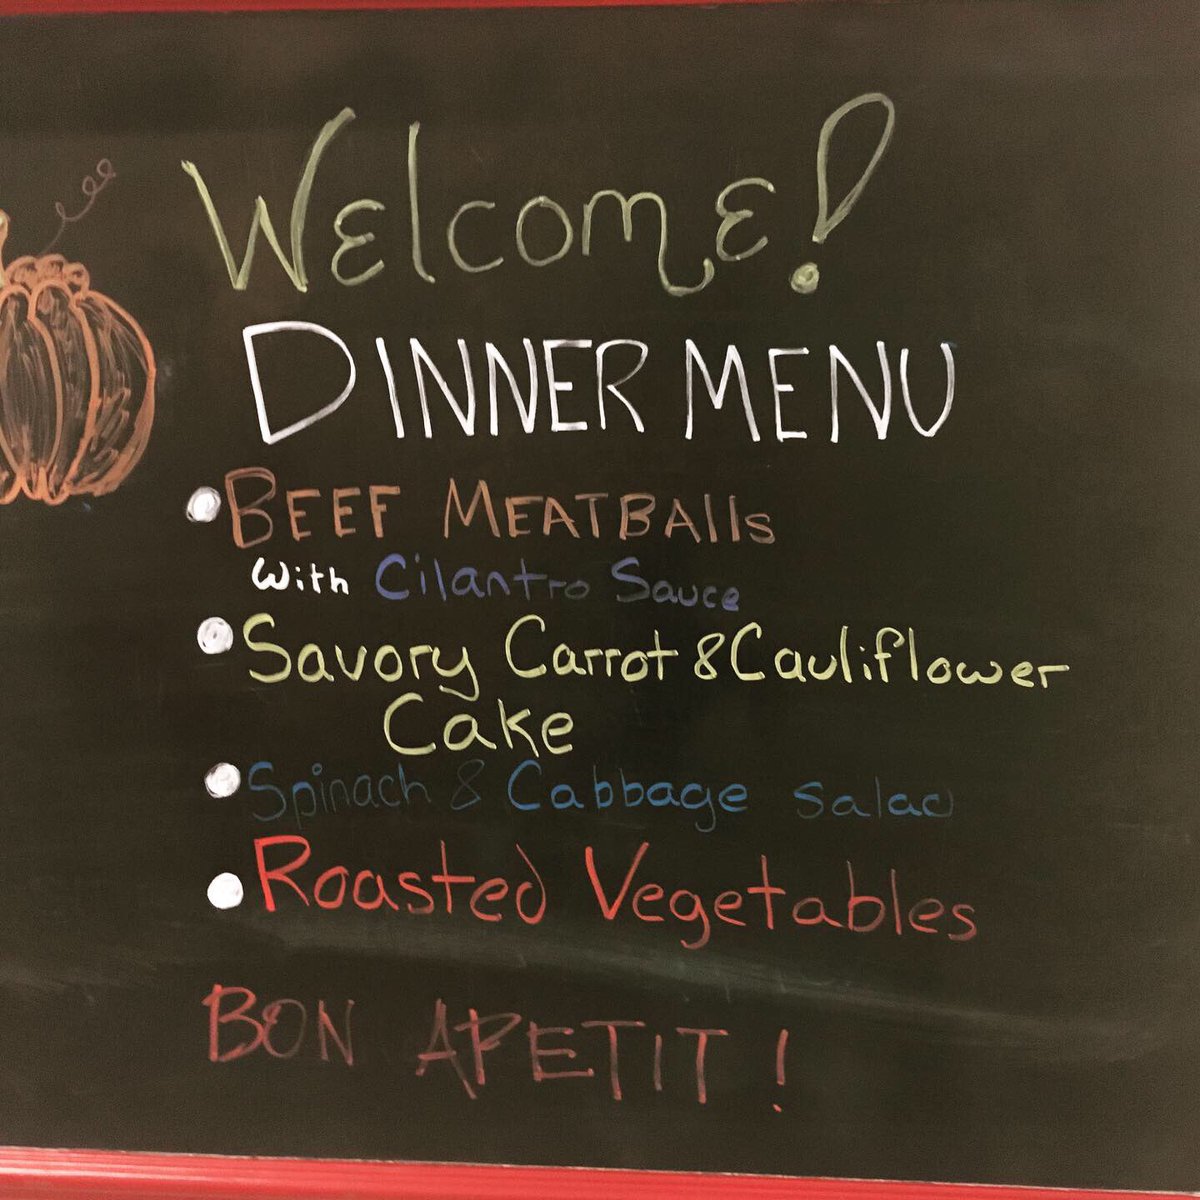 Welcome!
DINNER MENU
BEEF MEATBAlls
with Cilantro Sauce
Savory Carrot & Cauliflower
Cake
Spinach & Cabbage Salad
Roasted Vegetables
BON APETIT!